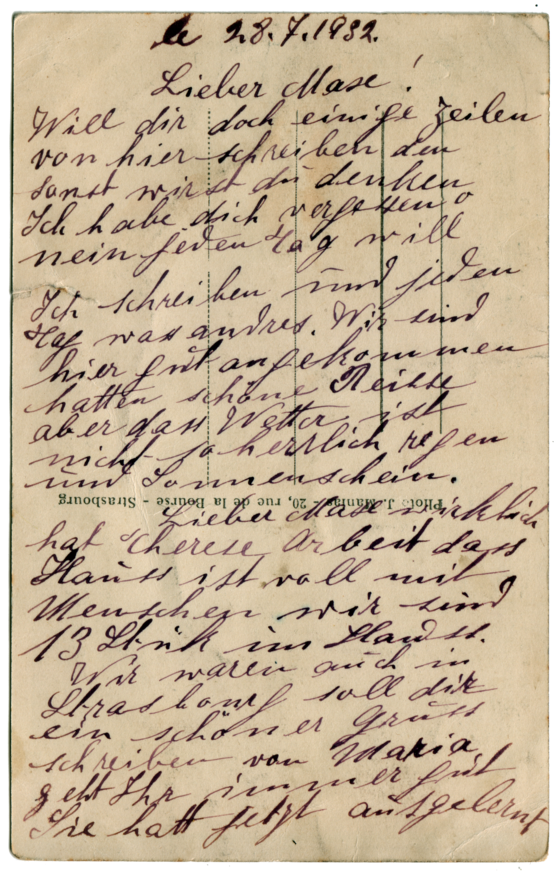 le 28.7.1932.
Lieber Mase!
Will dir doch einige zeilen
von hier schreiben den
sonst wirst du denken
Ich habe dich vergessen o
nein jeden Tag will
Ich schreiben und jeden
Tag was andres. Wir sind
hier gut angekommen
hatten schöne Reisse
aber dass Wetter ist
nicht so herrlich regen
und Sonnenschein.
Photo J. Manias - 20, rue de la Bourse - Strasbourg
Lieber Mase wirklich
hat Therese Arbeit dass
Hauss ist voll mit
Menschen wir sind
13 Stük im Hauss.
Wir waren auch in
Strasbourg soll dir
ein schöner Gruss
schreiben von Maria
geht Ihr immer gut
Sie hatt jetzt ausgelernt